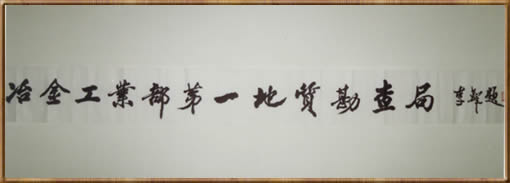 冶金工業部第一地質勘查局 李鐸題